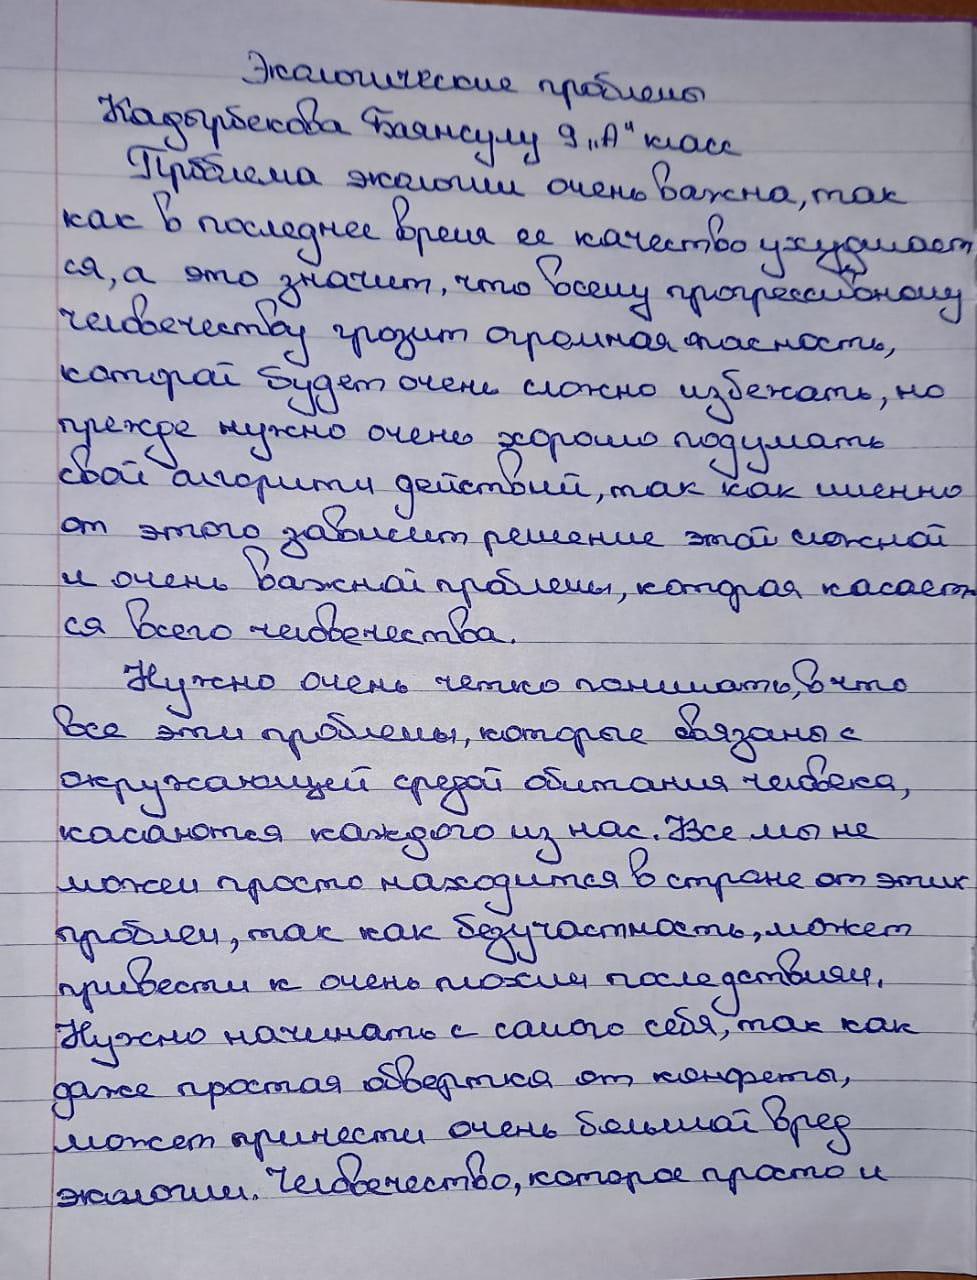 Экологические проблемы
Кадырбекова Баянсулу 9 „А" класс
Проблема экологии очень важна, так
как в последнее время ее качество ухудшает
ся, а это значит, что всему прогрессивному
человечеству грозит огромная опасность,
которой будет очень сложно избежать, но
прежде нужно очень хорошо подумать
свой алгоритм действий, так как именно
от этого зависит решение этой сложной
и очень важной проблемы, которая касает
ся всего человечества.
Нужно очень четко понимать, что
все эти проблемы, которые связаны с
окружающей средой обитания человека,
касаются каждого из нас. Все мы не
можем просто находится в стране от этих
проблем, так как безучастность, может
привести к очень плохим последствиям.
Нужно начинать с самого себя, так как
даже простая обвертка от конфеты,
может принести очень большой вред
экологии. Человечество, которое просто и